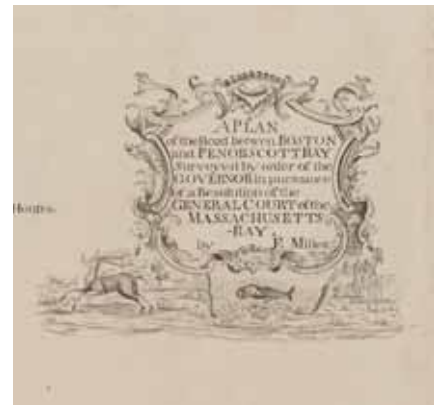 A PLAN
of the Road betwen BOSTON
and PENOBSCOTT BAY
Surveyed by order of the
GOVERNOR in pursuance
of a Resolution of the
GENERAL COURT of the
MASSACHUSETTS
-BAY,
by F. Miller